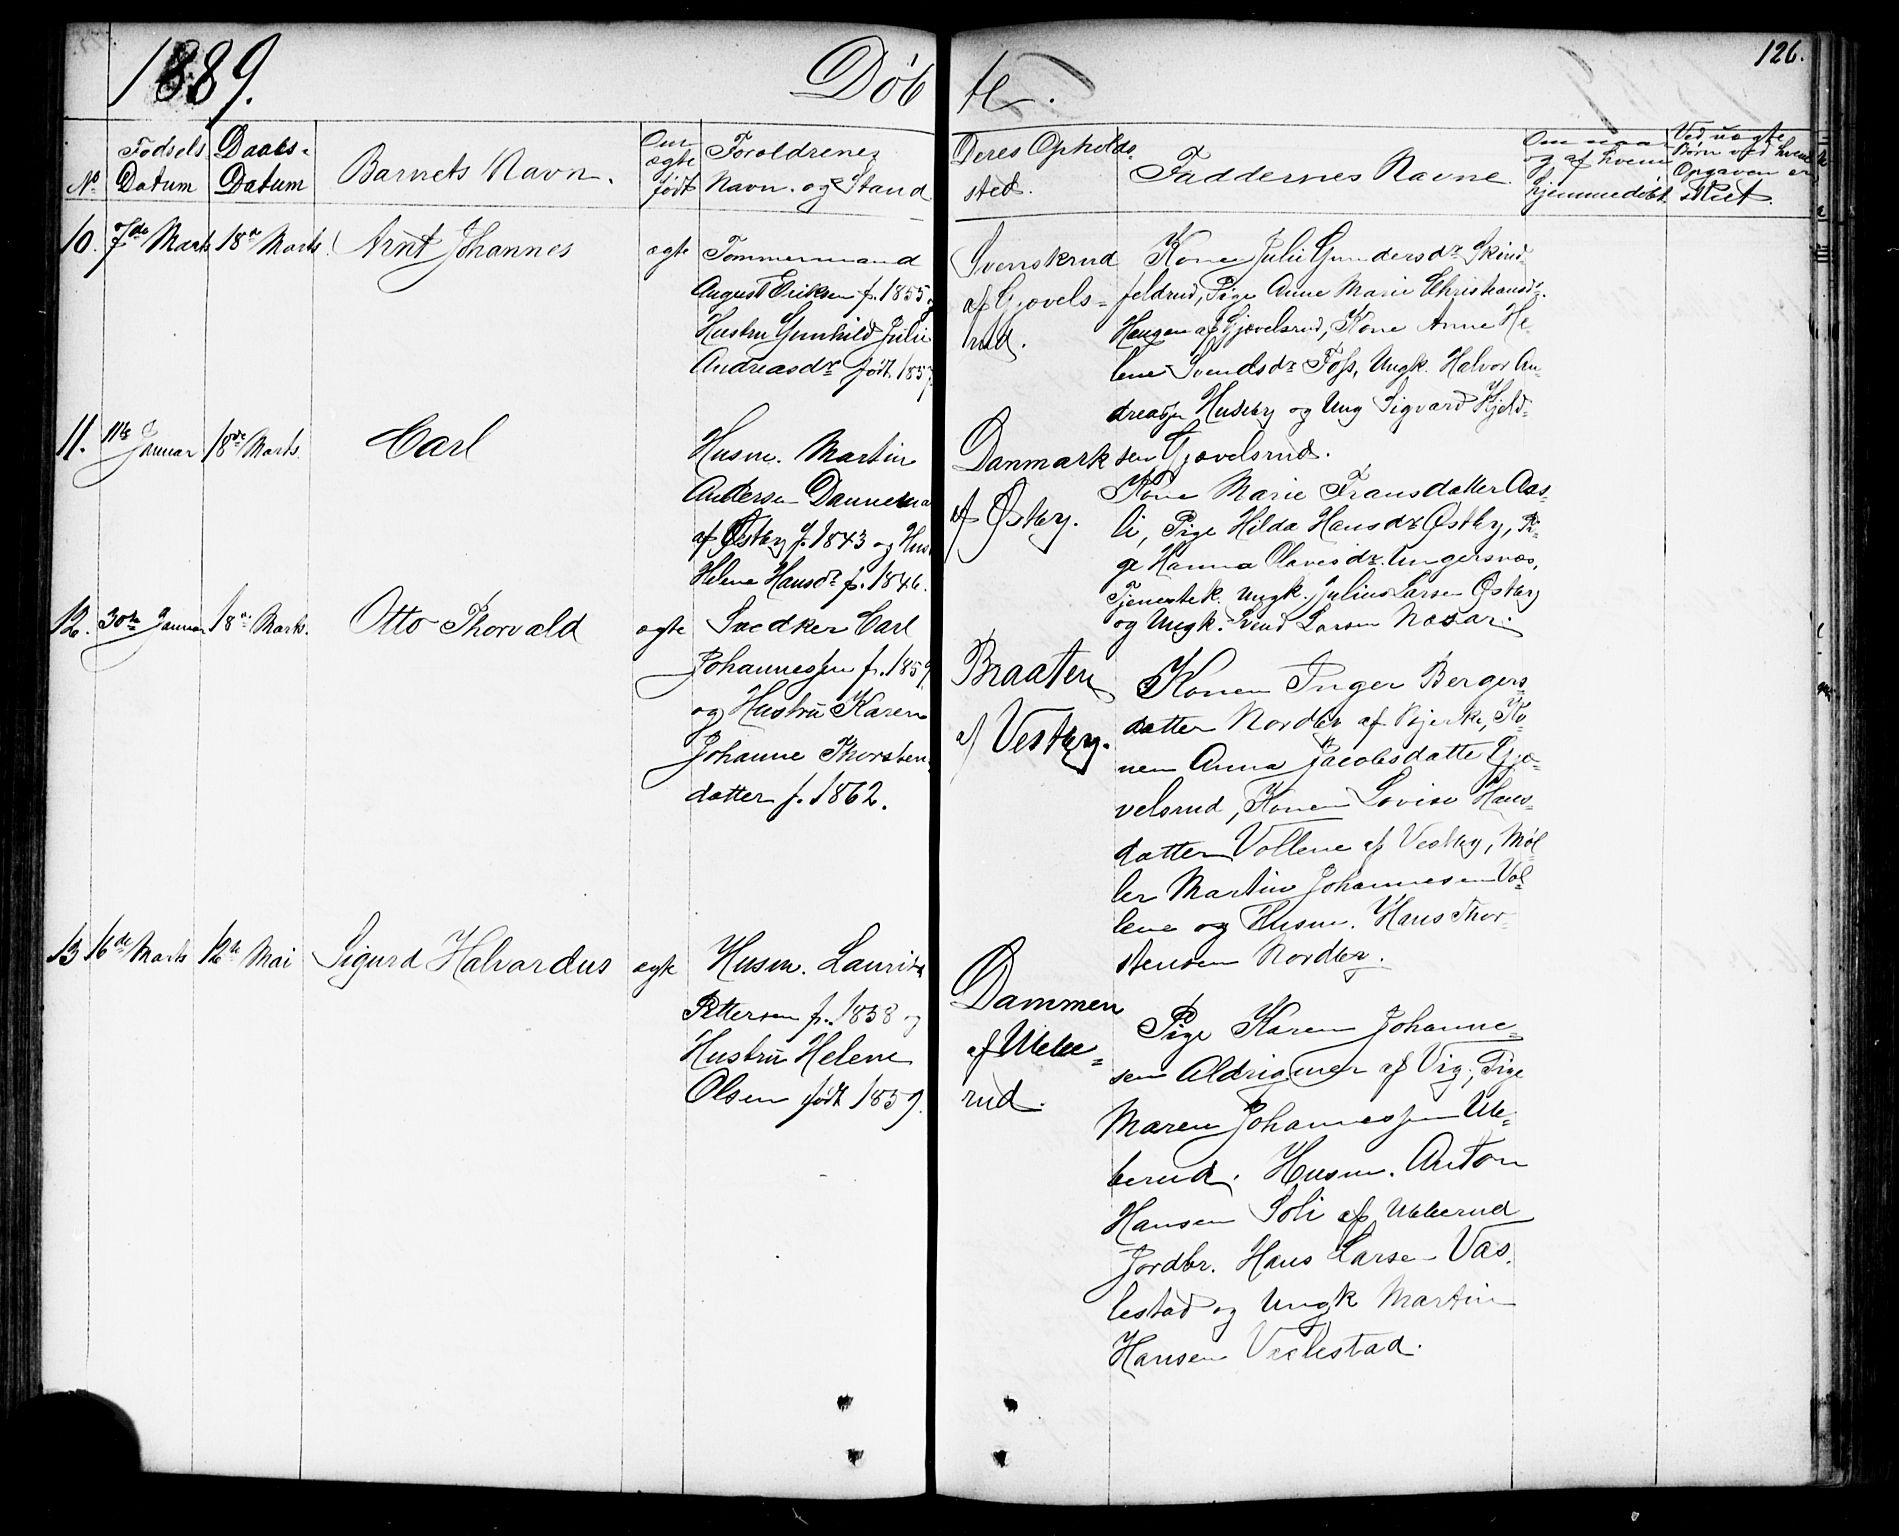 1889. Døb te. 126.
No Fødsels Datum
Daabs- Datum
Barnets Navn.
Om ægte født
Forældrenes Navn og Stand
Deres Opholds- sted.
Faddernes Navne
Om naar og af hvem hjemmedøbt
Ved uægte Børn ved hvem Opgaven er skeet.
10. 7de Marts 18de Marts Arnt Johannes ægte
Tømmermand
August Eriksen f. 1855 og
Hustru Gunhild Julie
Andreasdr født 1857
Svenskerud
af Gjøvels-
rud.
Kone Julie Gundersdr Skind-
feldrud, Pige Anne Marie Christiansdr.
Haugen af Gjøvelsrud, Kone Anne He-
lene Svendsdr Foss, Ungk. Halvor An-
dreasen Huseby og Ung Sigvard Kjeld-
sen Gjøvelsrud.
11. 11te Januar 18de Marts. Carl
Husm. Martin
Andersen Danmark
af Østby f. 1843 og Hust
Helene Hansdr f. 1846.
Danmark
af Østby.
Kone Marie Fransdatter Aas-
li, Pige Hilda Hansdr Østby, Pi-
ge Hanna Olavesdr. Ungersnæs,
Tjenestek. Ungk. Julius Larsen Østby
og Ungk. Svend Larsen Næsar.
12. 30te Januar 18de Marts. Otto Thorvald ægte
Snedker Carl
Johannessen f. 1859
og Hustru Karen
Johanne Thorsten-
datter f. 1862.
Braaten
af Vestby.
Konen Inger Bergers-
datter Nordby af Bjerke, Ko-
nen Anna Jacobsdatte Gjø-
velsrud, Konen Lovise Hans-
datter Vollene af Vestby, Møl-
ler Martin Johannesen Vol-
lene og Husm. Hans Thor-
stensen Nordby.
13 16de Marts 12te Mai Sigurd Halvardus ægte
Husm. Lauritz
Pettersen f. 1858 og
Hustru Helene
Olsen født 1859.
Dammen
af Ulle-
rud.
Pige Karen Johanne-
sen Aldrigmer af Vig, Pige
Maren Johannessen Ule-
berud. Husm. Anton
Hansen Soli af Ulleberud
Jordbr. Hans Larsen Vas-
lestad og Ungk Martin
Hansen Vaslestad.